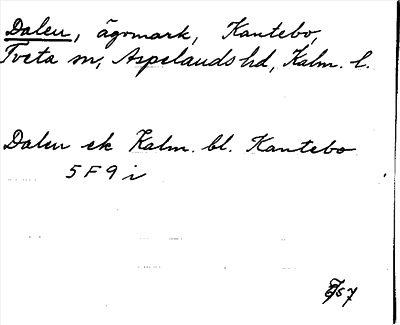 Dalen, ägomark, Kantebo,
Tveta sn, Aspelands hd, Kalm. l.
Dalen ek Kalm. bl. Kantebo
5 F 9 i